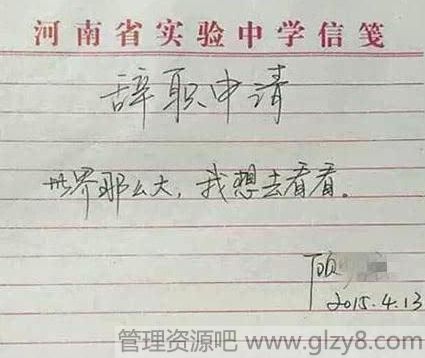 河南省实验中学信笺
辞职申请
世界那么大，我想去看看。
顾
2015.4.13
管理资源吧 www.glzy8.com